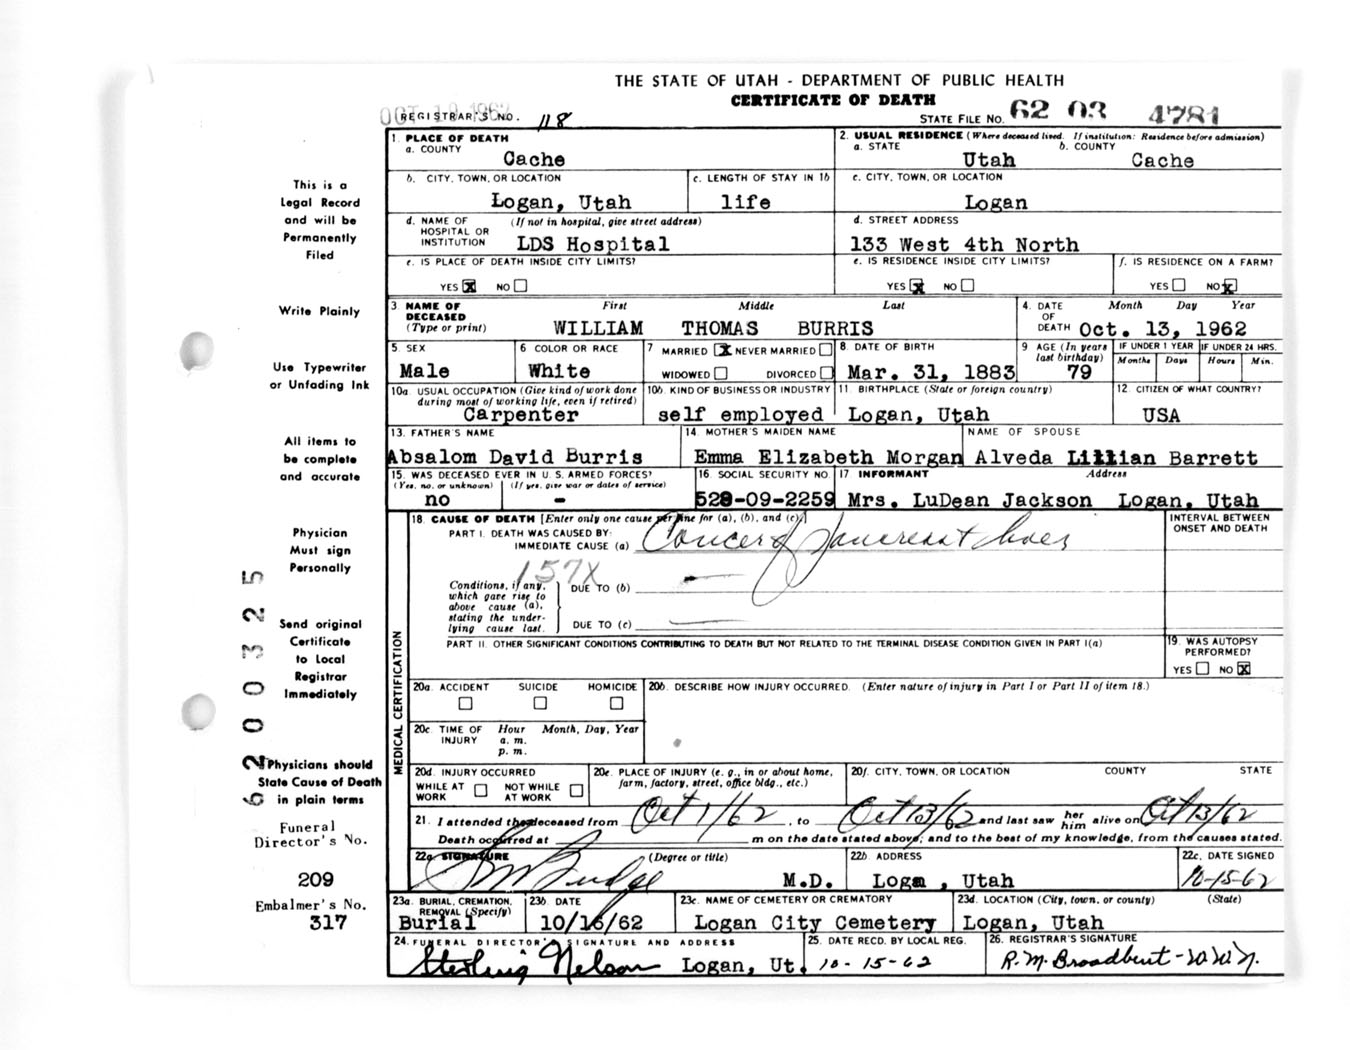 THE STATE OF UTAH - DEPARTMENT OF PUBLIC HEALTH
CERTIFICATE OF DEATH
REGISTRAR'S NO. 118
STATE FILE NO. 62 03 4781
1. PLACE OF DEATH
a. COUNTY
Cache
2. USUAL RESIDENCE (Where deceased lived. If institution: Residence before admission)
a. STATE b. COUNTY
Utah Cache
b. CITY, TOWN, OR LOCATION
Logan, Utah
c. LENGTH OF STAY IN 1b
life
c. CITY, TOWN, OR LOCATION
Logan
d. NAME OF HOSPITAL OR INSTITUTION (If not in hospital, give street address)
LDS Hospital
d. STREET ADDRESS
133 West 4th North
e. IS PLACE OF DEATH INSIDE CITY LIMITS?
YES X NO
e. IS RESIDENCE INSIDE CITY LIMITS?
YES X NO
f. IS RESIDENCE ON A FARM?
YES NO X
3. NAME OF DECEASED (Type or print)
First Middle Last
WILLIAM THOMAS BURRIS
4. DATE OF DEATH Month Day Year
Oct. 13, 1962
5. SEX
Male
6 COLOR OR RACE
White
7 MARRIED X NEVER MARRIED
WIDOWED DIVORCED
8. DATE OF BIRTH
Mar. 31, 1883
9 AGE (In years last birthday)
79
IF UNDER 1 YEAR IF UNDER 24 HRS.
Months Days Hours Min.
10a. USUAL OCCUPATION (Give kind of work done during most of working life, even if retired)
Carpenter
10b. KIND OF BUSINESS OR INDUSTRY
self employed
11. BIRTHPLACE (State or foreign country)
Logan, Utah
12. CITIZEN OF WHAT COUNTRY?
USA
13. FATHER'S NAME
Absalom David Burris
14. MOTHER'S MAIDEN NAME
Emma Elizabeth Morgan
NAME OF SPOUSE
Alveda Lillian Barrett
15. WAS DECEASED EVER IN U. S. ARMED FORCES?
(Yes, no, or unknown) (If yes, give war or dates of service)
no -
16. SOCIAL SECURITY NO.
528-09-2259
17 INFORMANT Address
Mrs. LuDean Jackson Logan, Utah
MEDICAL CERTIFICATION
18. CAUSE OF DEATH [Enter only one cause per line for (a), (b), and (c).]
PART I. DEATH WAS CAUSED BY:
IMMEDIATE CAUSE (a)
157X
Conditions, if any, which gave rise to above cause (a), stating the underlying cause last.
DUE TO (b)
DUE TO (c)
INTERVAL BETWEEN ONSET AND DEATH
PART II. OTHER SIGNIFICANT CONDITIONS CONTRIBUTING TO DEATH BUT NOT RELATED TO THE TERMINAL DISEASE CONDITION GIVEN IN PART I(a)
19. WAS AUTOPSY PERFORMED?
YES NO X
20a. ACCIDENT SUICIDE HOMICIDE
20b. DESCRIBE HOW INJURY OCCURRED. (Enter nature of injury in Part I or Part II of item 18.)
20c. TIME OF INJURY Hour Month, Day, Year
a. m.
p. m.
20d. INJURY OCCURRED
WHILE AT WORK NOT WHILE AT WORK
20e. PLACE OF INJURY (e. g., in or about home, farm, factory, street, office bldg., etc.)
20f. CITY, TOWN, OR LOCATION COUNTY STATE
21. I attended the deceased from Oct 1/62, to Oct 13/62 and last saw her him alive on Oct 13/62
Death occurred at m on the date stated above; and to the best of my knowledge, from the causes stated.
22a. SIGNATURE (Degree or title)
M.D.
22b. ADDRESS
Logan, Utah
22c. DATE SIGNED
10-15-62
23a. BURIAL, CREMATION, REMOVAL (Specify)
Burial
23b. DATE
10/16/62
23c. NAME OF CEMETERY OR CREMATORY
Logan City Cemetery
23d. LOCATION (City, town, or county) (State)
Logan, Utah
24. FUNERAL DIRECTOR'S SIGNATURE AND ADDRESS
Sterling Nelson Logan, Ut.
25. DATE RECD. BY LOCAL REG.
10-15-62
26. REGISTRAR'S SIGNATURE
R. M. Broadbent
This is a
Legal Record
and will be
Permanently
Filed
Write Plainly
Use Typewriter
or Unfading Ink
All items to
be complete
and accurate
Physician
Must sign
Personally
Send original
Certificate
to Local
Registrar
Immediately
Physicians should
State Cause of Death
in plain terms
Funeral
Director's No.
209
Embalmer's No.
317
62 00325